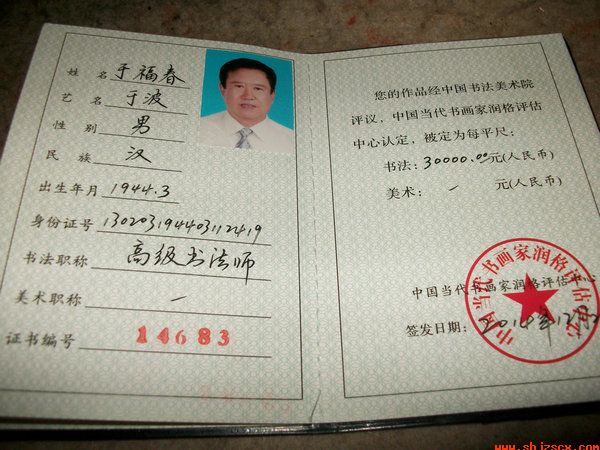 姓 名 于福春
艺 名 于波
性 别 男
民 族 汉
出生年月 1944.3
身份证号 130203194403112419
书法职称 高级书法师
美术职称 一
证书编号 14683
您的作品经中国书法美术院
评议，中国当代书画家润格评估
中心认定，被定为每平尺：
书法：30000.00元(人民币)
美术： 一 元(人民币)
中国当代书画家润格评估中心
签发日期：
中国当代书画家润格评估中心
www.shjzscx.com